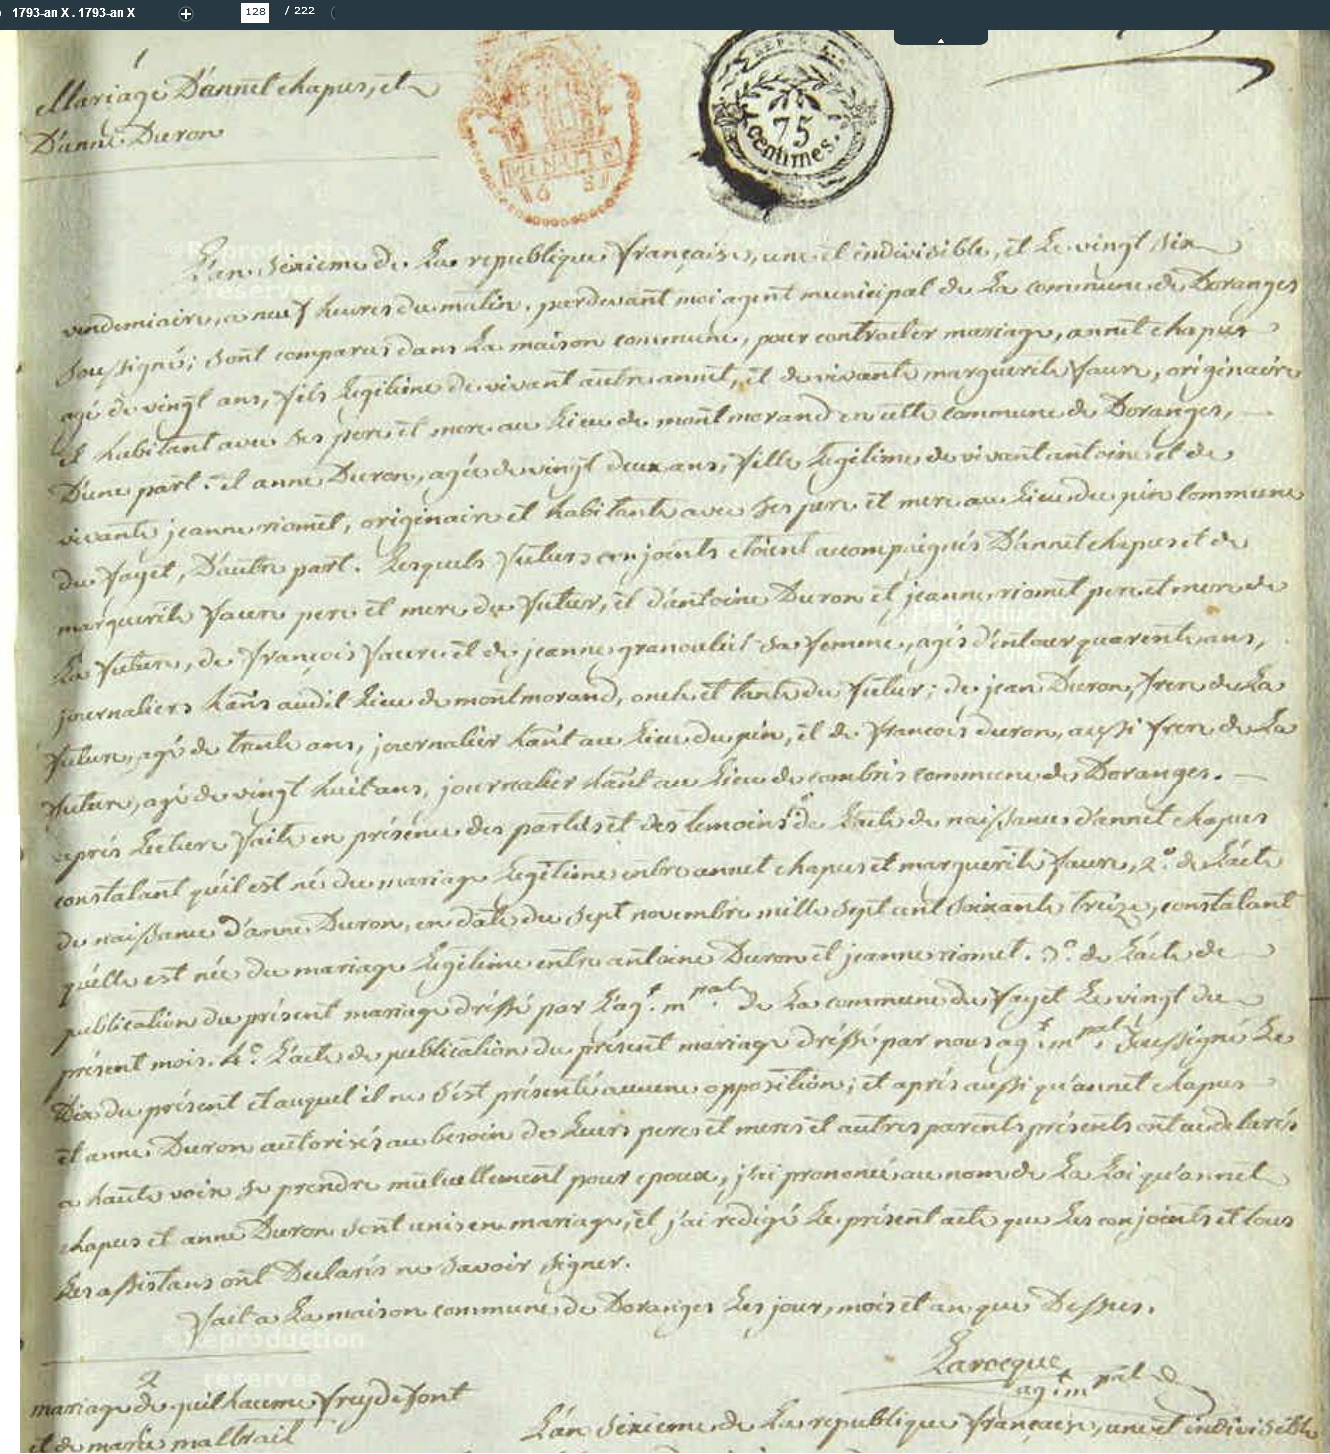 1793-an X . 1793-an X
128 / 222
1
Mariage D'annet chapus, et
D'anne Duron
MINUTE
REP. FRA.
75
centimes.
L'an sixieme de La republique française, une et indivisible, et Le vingt six
vendemiaire, a neuf heures du matin. pardevant moi agent municipal de La commune de Doranges
soussigné; sont comparus dans La maison commune, pour contracter mariage, annet chapus
agé de vingt ans, fils Legitime de vivant autre annet, et de vivante marguerite faure, originaire
et habitant avec ses pere et mere au Lieu de montmorand en cette commune de Doranges,
D'une part. et anne Duron, agée de vingt deux ans, fille Legitime de vivant antoine et de
vivante jeanne riomet, originaire et habitante avec ses pere et mere au Lieu du pin commune
du fayet, D'autre part. Lesquels futurs conjoints etoient accompagnés D'annet chapus et de
marguerite faure pere et mere du futur, et d'antoine Duron et jeanne riomet pere et mere de
La future, de françois faure et de jeanne granoulet sa femme, agés d'entour quarente ans,
journaliers hans audit Lieu de montmorand, oncle et tante du futur; de jean Duron, frere de La
future, agé de trente ans, journalier hant au Lieu du pin, et de francois duron, aussi frere de La
future, agé de vingt huit ans, journalier hant au Lieu de combris commune de Doranges.
après Lecture faite en présence des parties et des temoins 1° de L'acte de naissance d'annet chapus
constatant qu'il est né du mariage Legitime entre annet chapus et marguerite faure, 2° de L'acte
de naissance d'anne Duron, en date du sept novembre mille sept cent soixante treize, constatant
qu'elle est née du mariage Legitime entre antoine Duron et jeanne riomet. 3° de L'acte de
publication du présent mariage dréssé par L'agt. mpal. de La commune du fayet Le vingt du
présent mois. 4° L'acte de publication du présent mariage dréssé par nous agt. mpal. soussigné Le
Dix du présent et auquel il ne s'est présenté aucune opposition; et aprés aussi qu'annet chapus
et anne Duron autorisés au besoin de Leurs peres et meres et autres parents présents ont eu declarés
a haute voix se prendre mutuellement pour epoux, j'ai prononcé au nom de La Loi qu'annet
chapus et anne Duron sont unis en mariage, et j'ai redigé Le présent acte que Les conjoints et tous
Les assistans ont Declarés ne savoir signer.
fait a La maison commune de Doranges Les jour, mois et an que Dessus.
Larocque
agt. mpal
2
mariage de guilhaume freydefont
et de marie maltrait
L'an sixieme de La republique française, une et indivisible